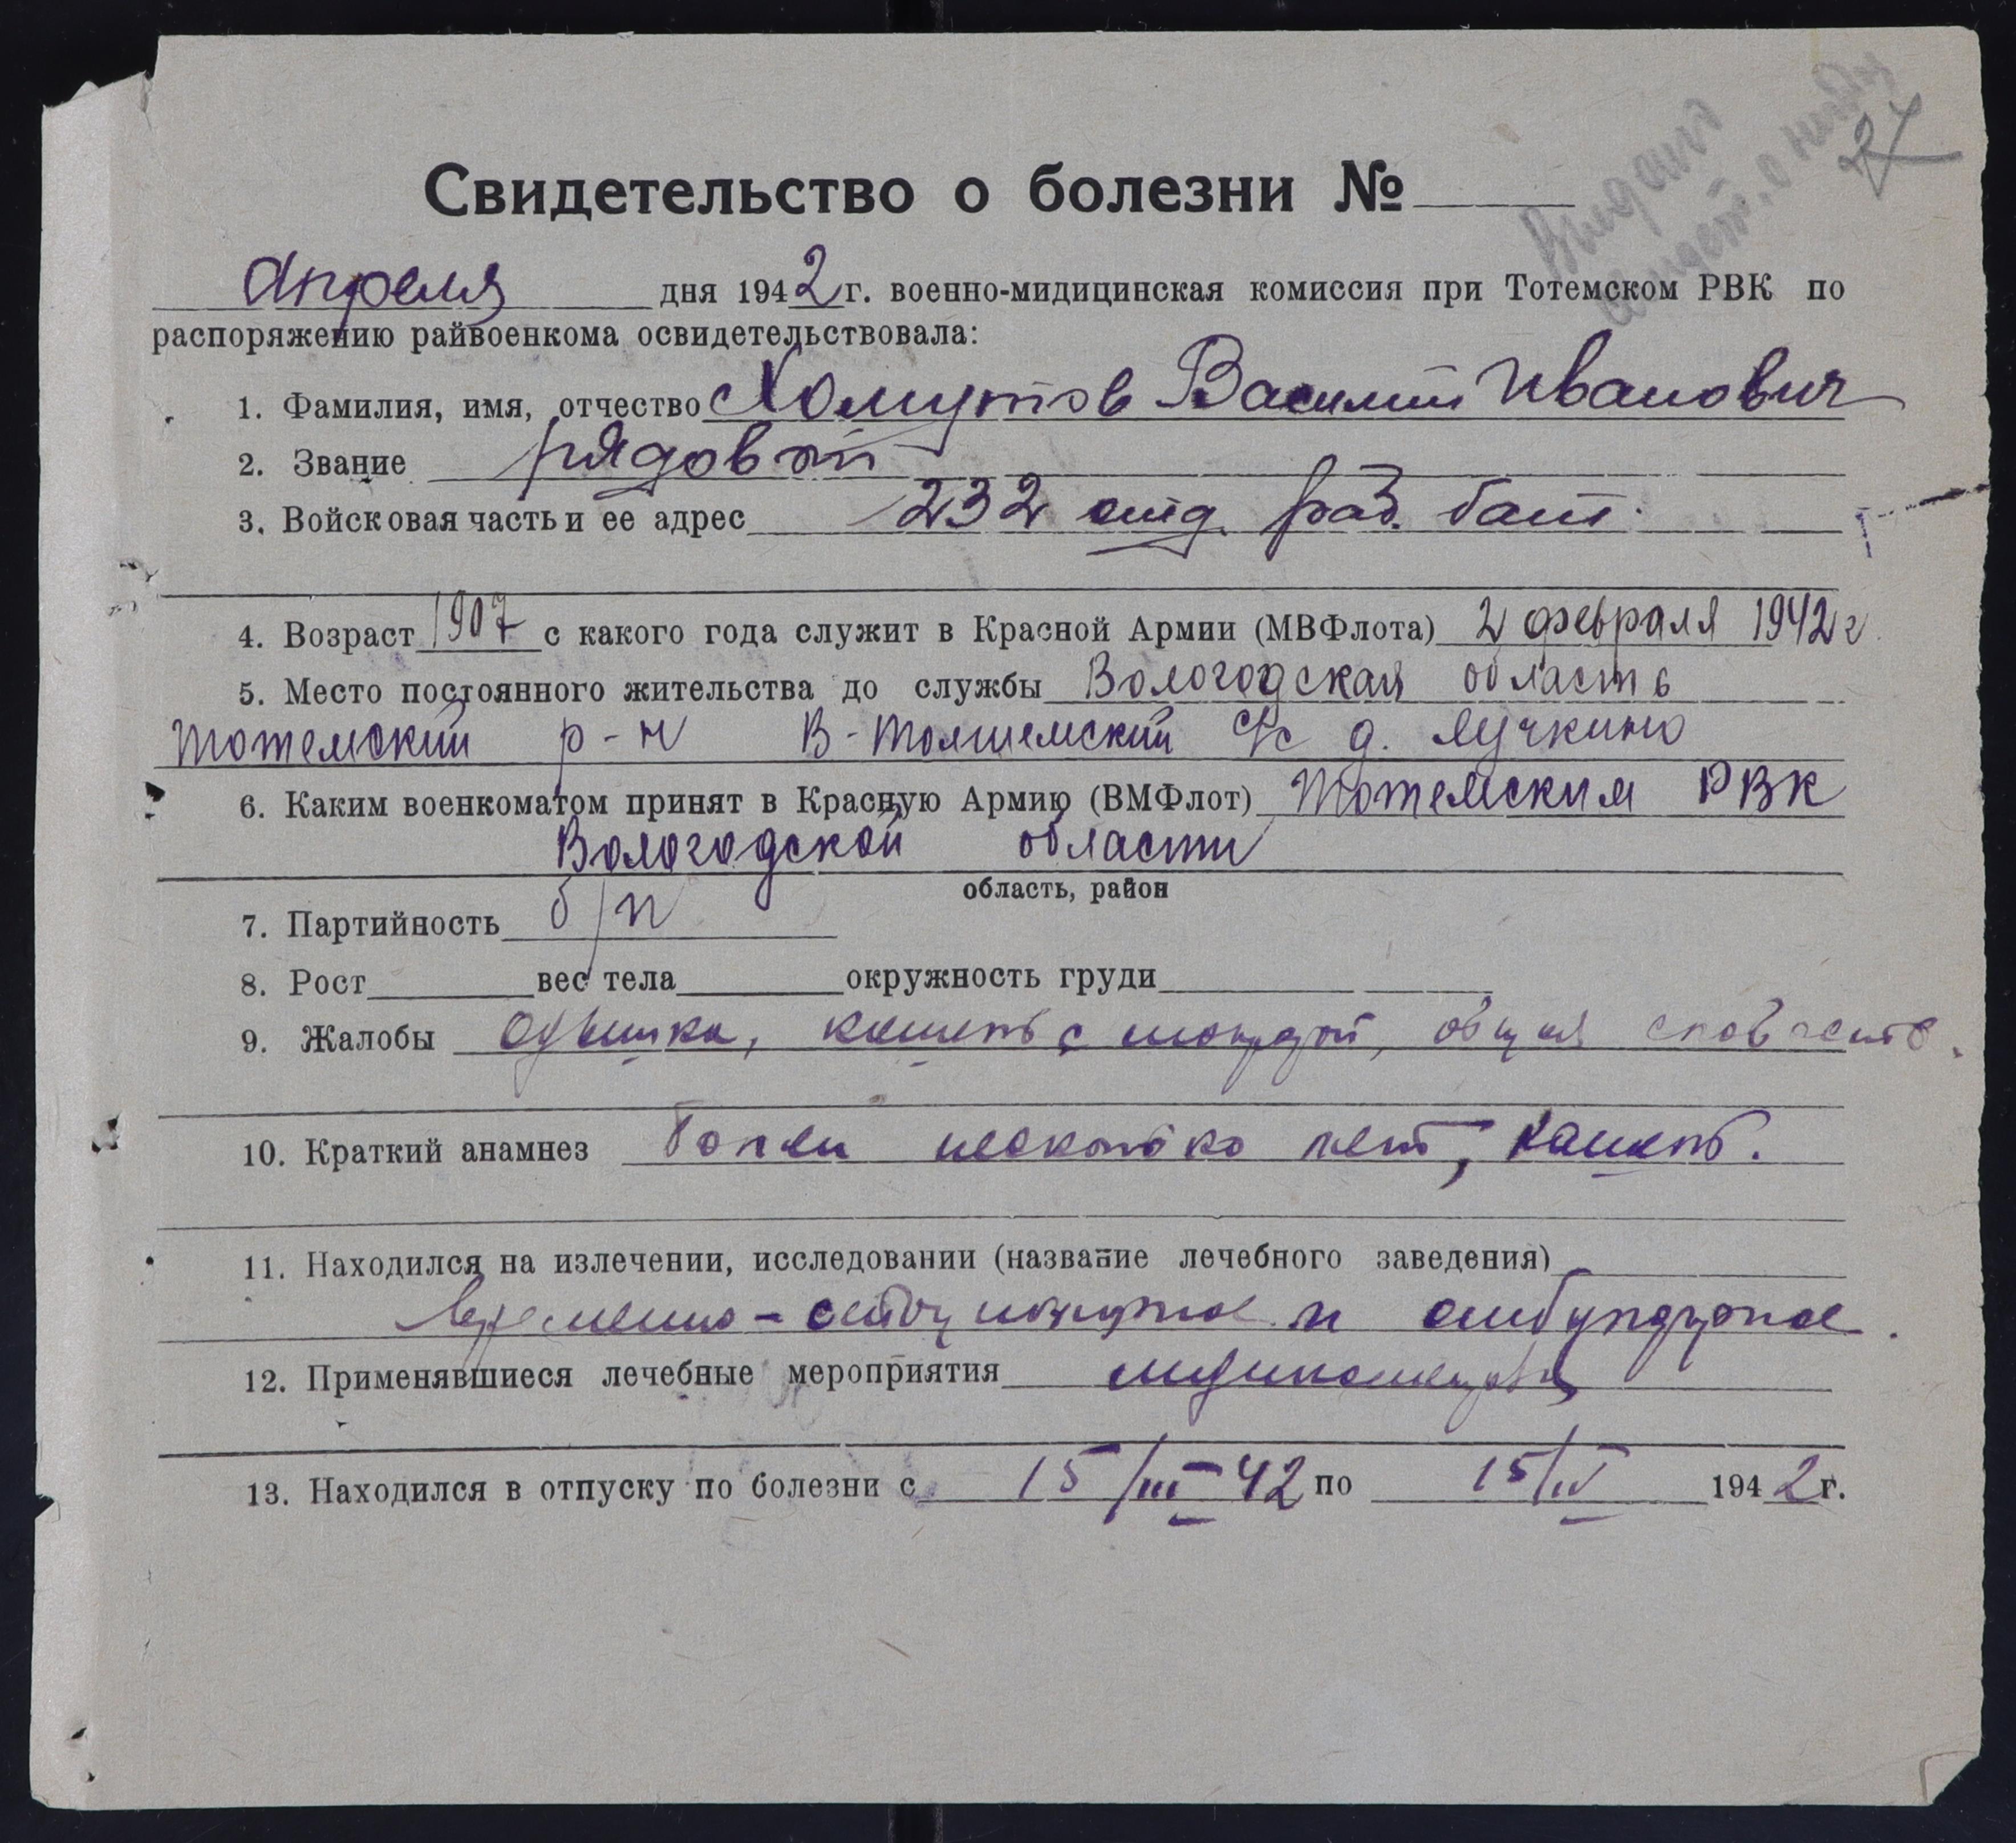 27
Выдано
свидет. о
Свидетельство о болезни №
Апреля дня 1942 г. военно-мидицинская комиссия при Тотемском РВК по
распоряжению райвоенкома освидетельствовала:
1. Фамилия, имя, отчество Хомутов Василий Иванович
2. Звание рядовой
3. Войсковая часть и ее адрес 232 отд. раб. бат.
4. Возраст 1907 с какого года служит в Красной Армии (МВФлота) 2 февраля 1942 г
5. Место постоянного жительства до службы Вологодская область
Тотемский р-н В-Толшемский с/с д. Лучкино
6. Каким военкоматом принят в Красную Армию (ВМФлот) Тотемским РВК
Вологодской области
область, район
7. Партийность б/п
8. Рост вес тела окружность груди
9. Жалобы Одышка, кашель с мокротой, общая слабость.
10. Краткий анамнез Болен несколько лет, кашель.
11. Находился на излечении, исследовании (название лечебного заведения)
Временно - и амбулаторное.
12. Применявшиеся лечебные мероприятия
13. Находился в отпуску по болезни с 15/III 42 по 15/IV 1942 г.